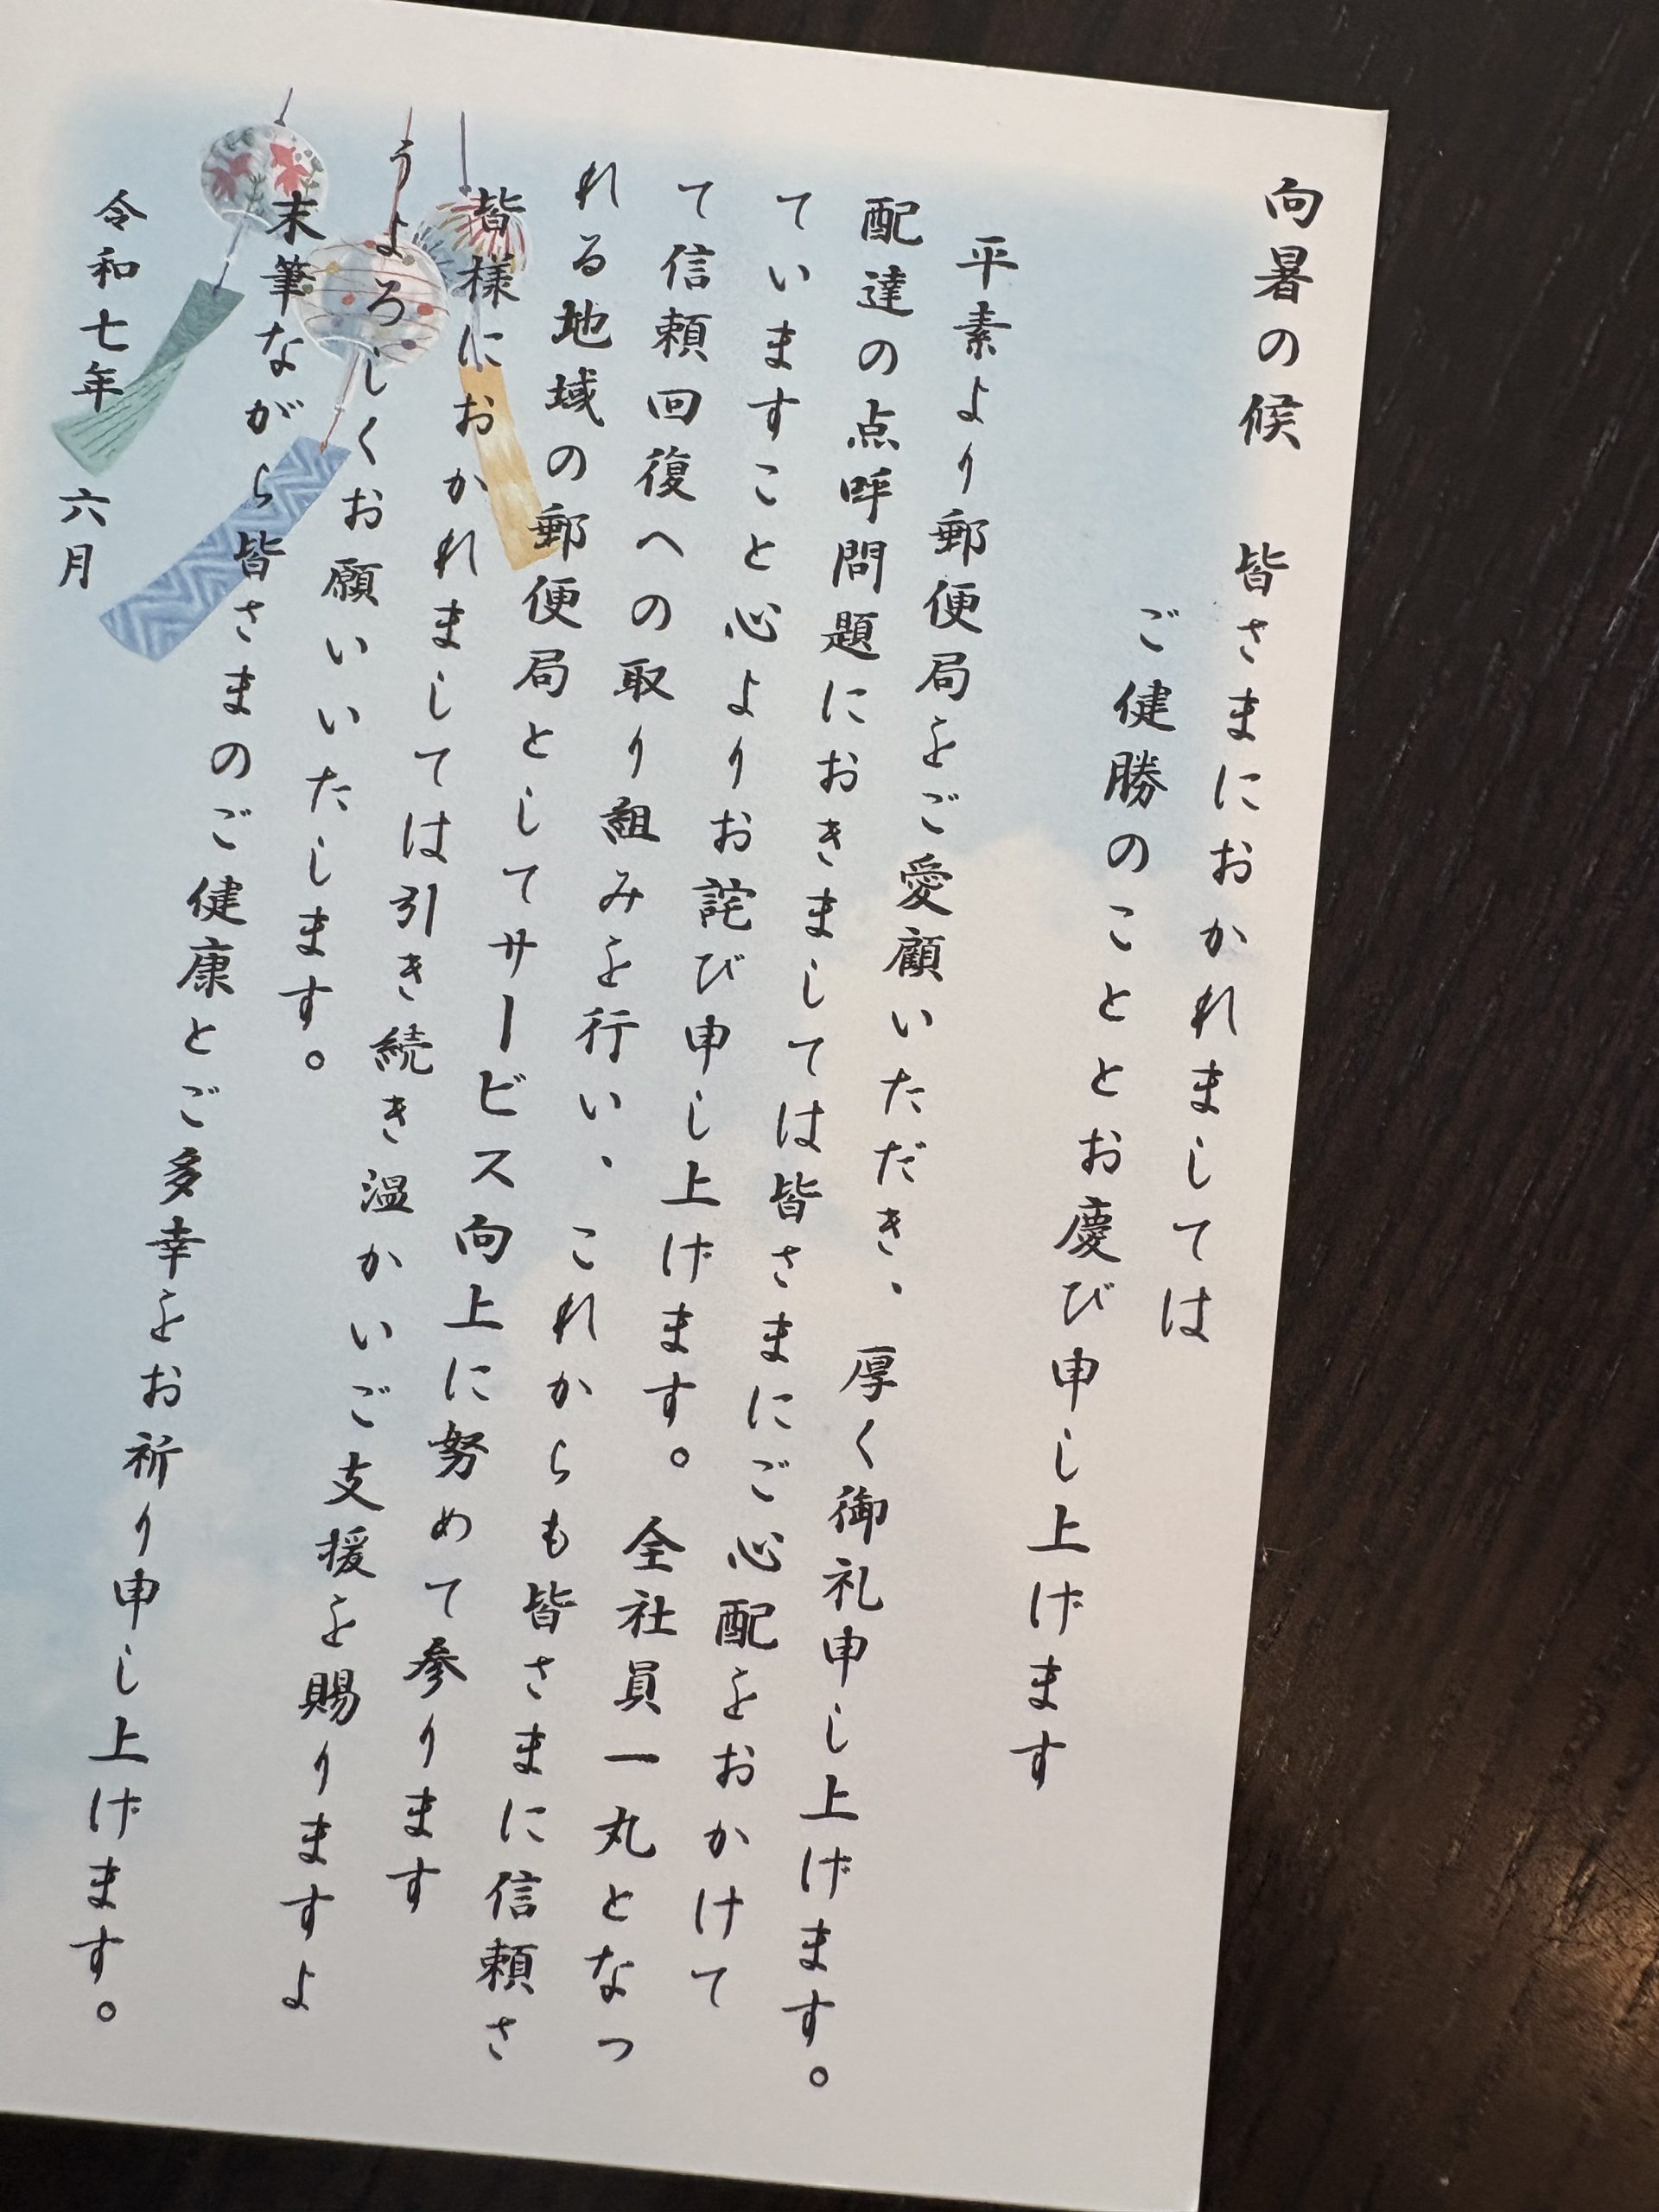 向暑の候　皆さまにおかれましては
ご健勝のこととお慶び申し上げます
平素より郵便局をご愛顧いただき、厚く御礼申し上げます。
配達の点呼問題におきましては皆さまにご心配をおかけて
ていますこと心よりお詫び申し上げます。全社員一丸となっ
て信頼回復への取り組みを行い、これからも皆さまに信頼さ
れる地域の郵便局としてサービス向上に努めて参ります
皆様におかれましては引き続き温かいご支援を賜りますよ
うよろしくお願いいたします。
末筆ながら皆さまのご健康とご多幸をお祈り申し上げます。
令和七年　六月